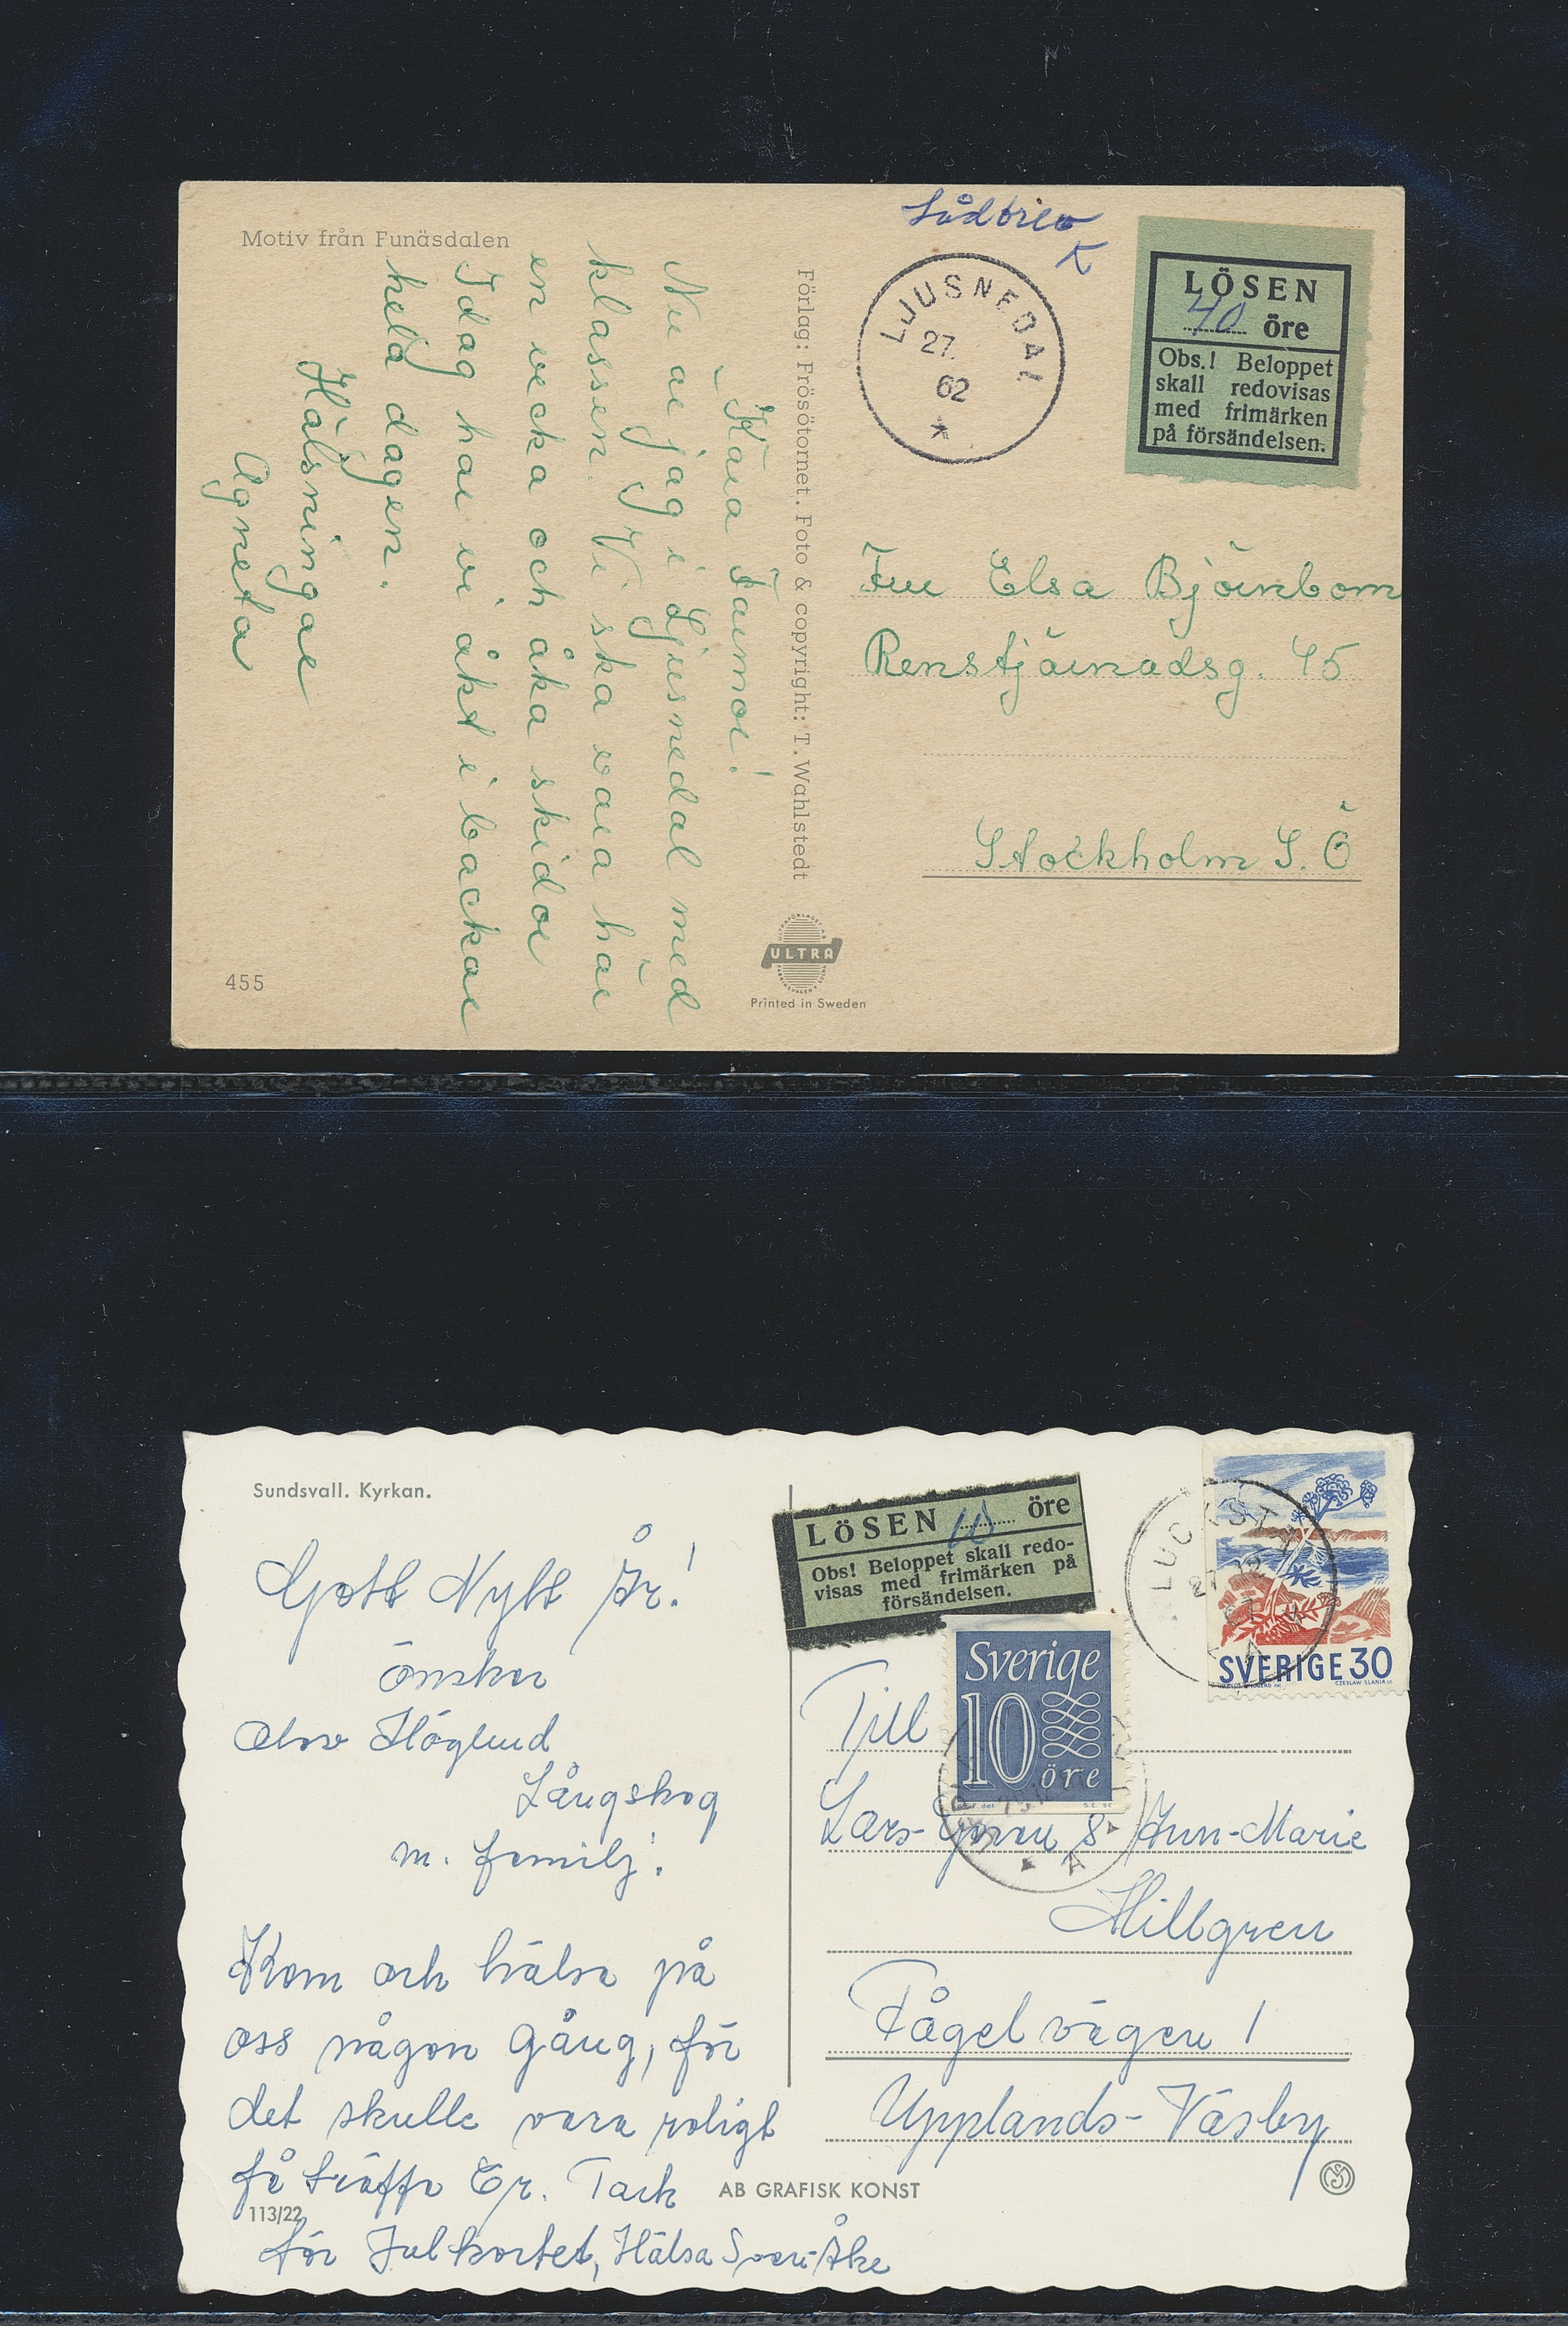 Motiv från Funäsdalen
Kära Farmor!
Nu är jag i Ljusnedal med
klassen. Vi ska vara här
en vecka och åka skidor
Idag har vi åkt i backar
hela dagen.
Hälsningar
Agneta
455
Förlag: Frösötornet. Foto & copyright: T. Wahlstedt
ULTRA
Printed in Sweden
Lådbrev
K
LJUSNEDAL
27.
62
LÖSEN
40 öre
Obs.! Beloppet
skall redovisas
med frimärken
på försändelsen.
Fru Elsa Björnbom
Renstjärnadsg. 45
Stockholm S. Ö
Sundsvall. Kyrkan.
Gott Nytt År!
önskar
Höglund
Långskog
m. familj.
Kom och hälsa på
oss någon gång, för
det skulle vara roligt
få träffa Er. Tack
113/22
för Julkortet, Hälsa Sven-Åke
AB GRAFISK KONST
LÖSEN 10 öre
Obs! Beloppet skall redo-
visas med frimärken på
försändelsen.
LUCKSTA
27 12
67
SVERIGE 30
CZESLAW SLANIA SC
Sverige
10
öre
Till
Lars-Göran & Ann-Marie
Hillgren
Fågelvägen 1
Upplands-Väsby